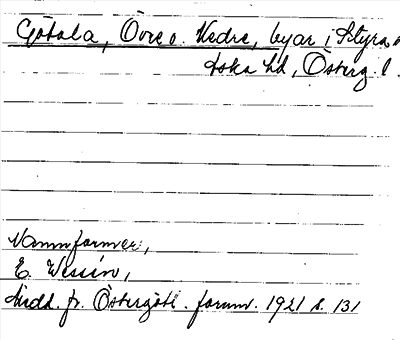 Götala, Övre o. Nedre, byar i Styra s
Aska hd, Österg. l.
Namnformer,
E. Wessén,
Medd. fr. Östergötl. fornm. 1921 s. 131